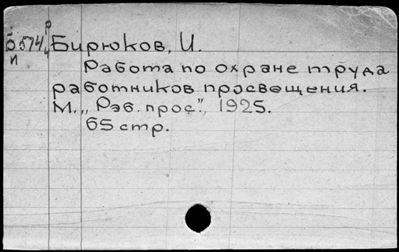 Бирюков, И.
Работа по охране труда
работников просвещения.
М., „Раб. прос.", 1925.
65 стр.